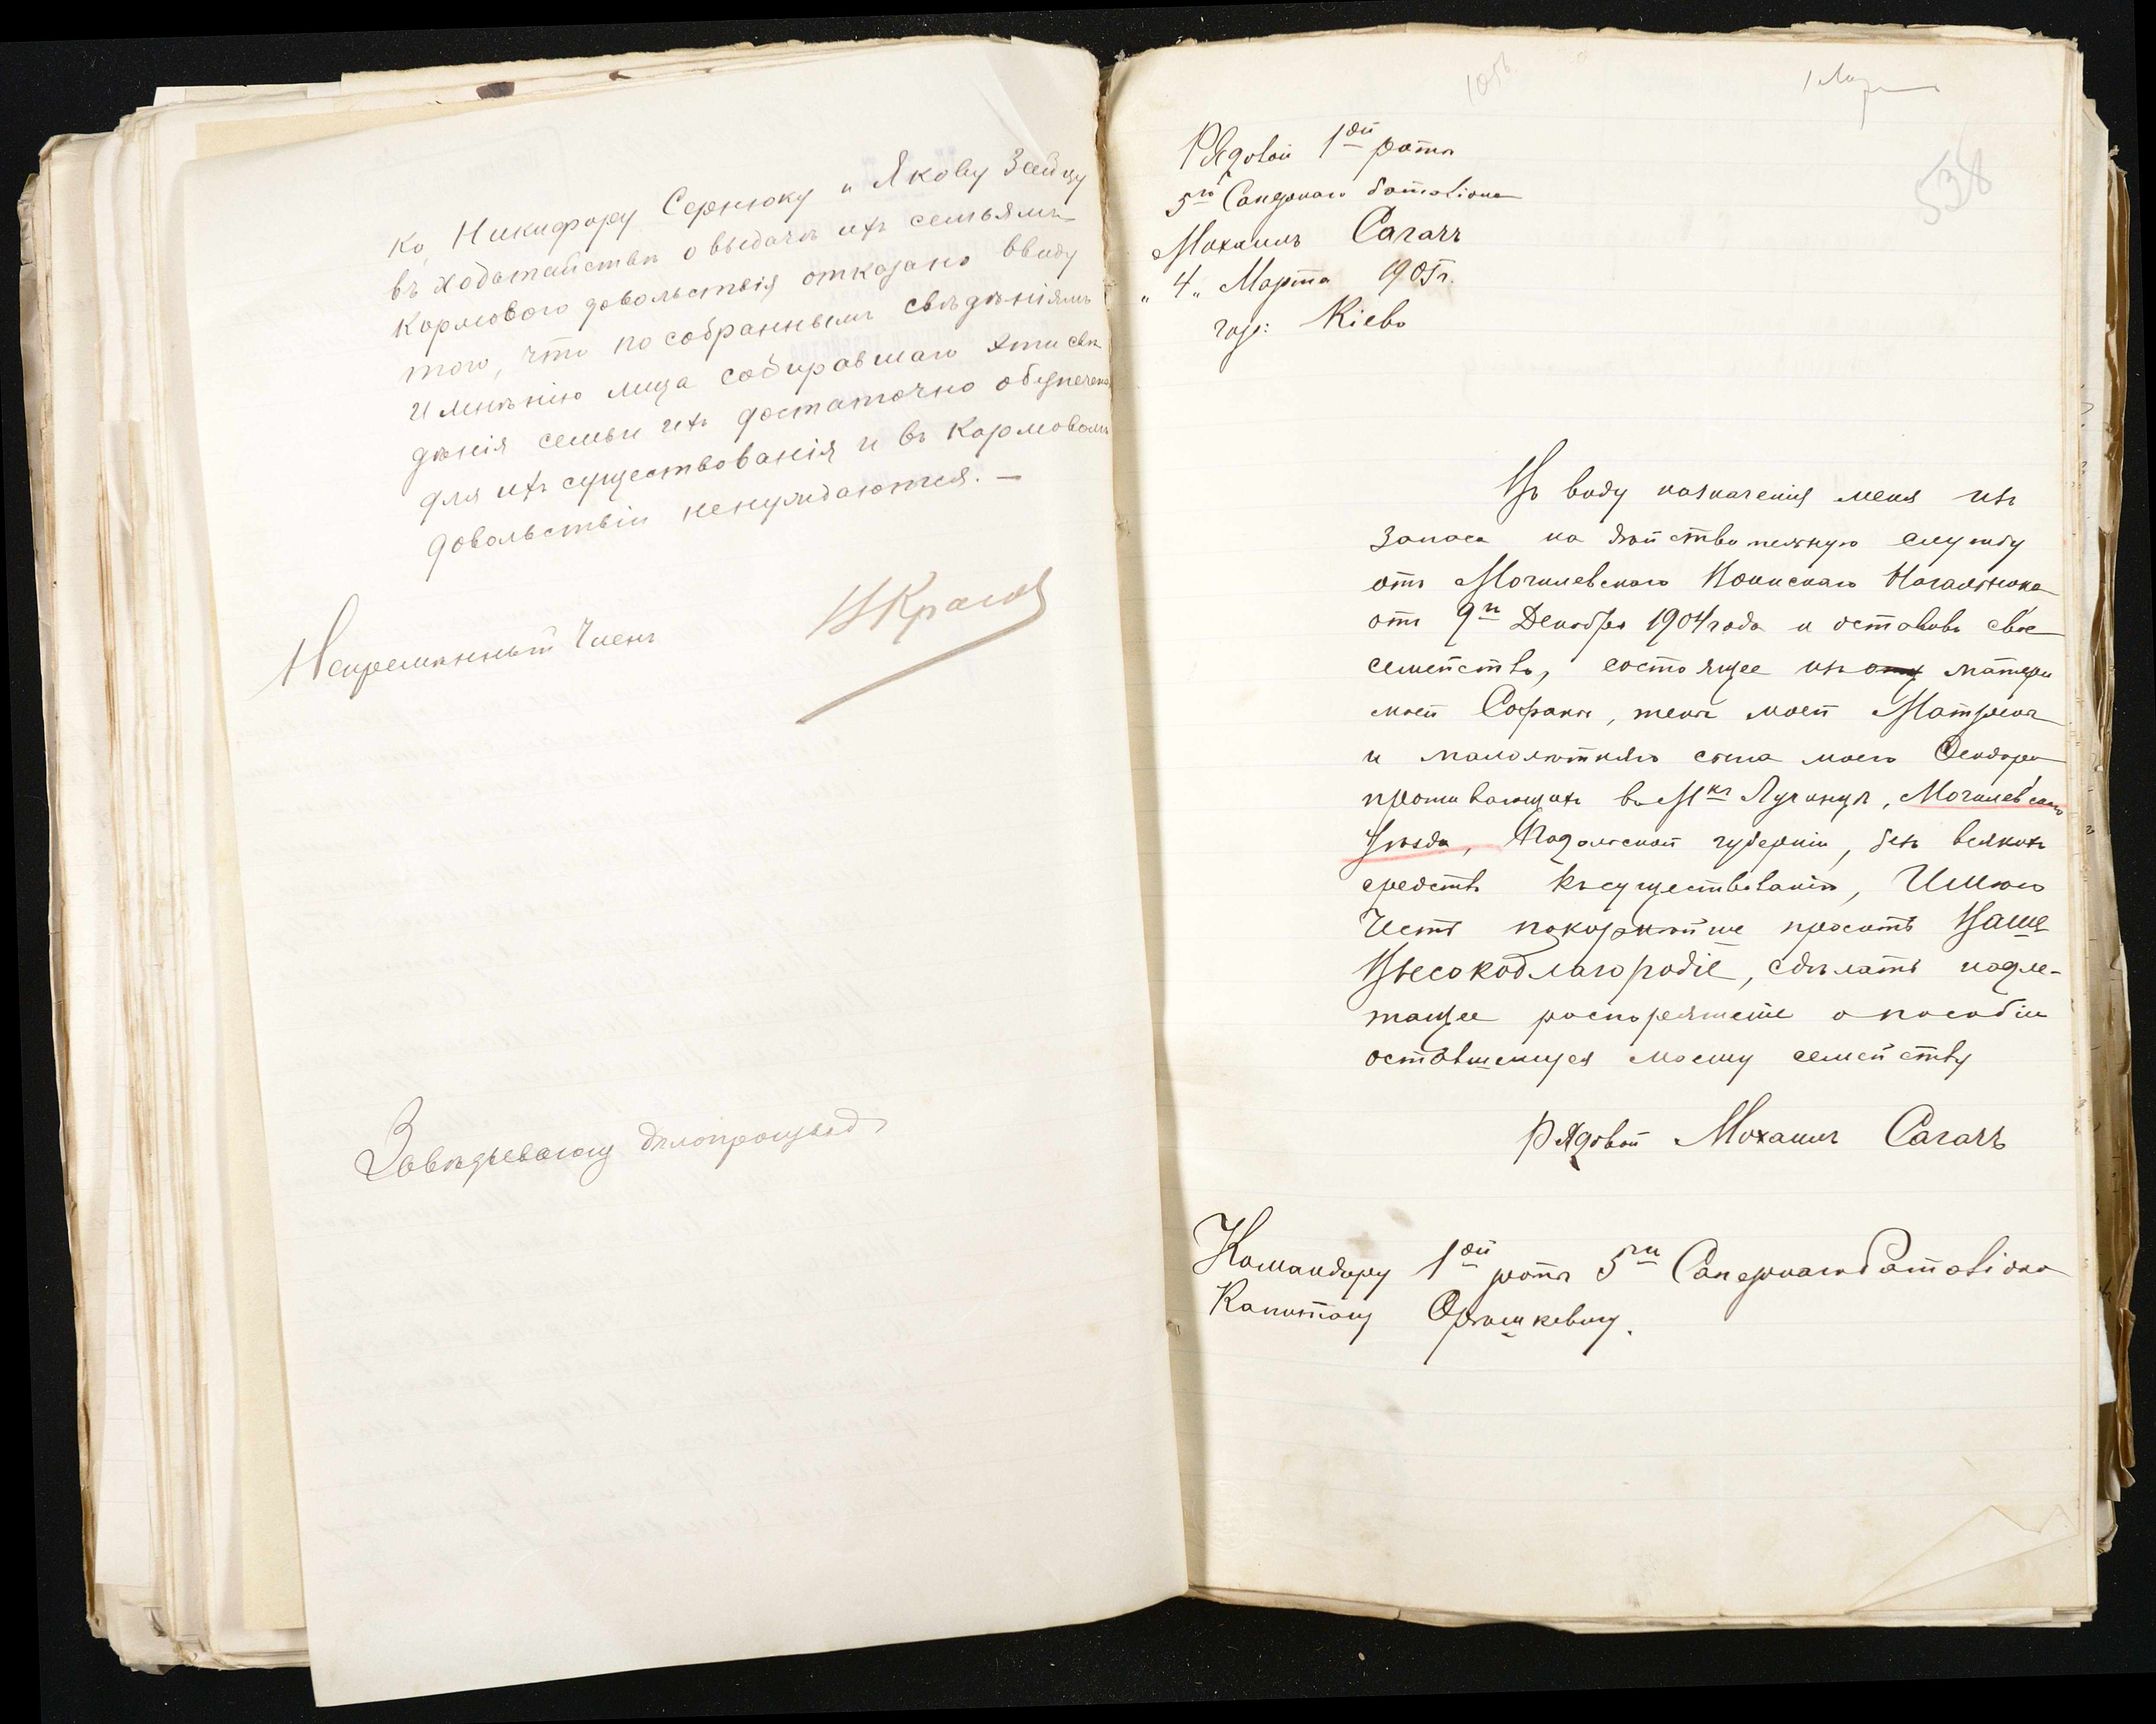 ко, Никифору Сернюку и Якову Зайцу
въ ходатайствѣ о выдачѣ ихъ семьямъ
кормового довольствія отказано ввиду
того, что по собраннымъ свѣдѣніямъ
и мнѣнію лица собиравшаго эти свѣ-
дѣнія семьи ихъ достаточно обезпечены
для ихъ существованія и въ кормовомъ
довольствіи ненуждаются. —
Непремѣнный Членъ
Завѣдывающ дѣлопроизвод
538
Рядовой 1ой роты
5го Сапернаго баталіона
Михаилъ Сагачъ
„4„ Марта 1905 г.
гор: Кіевъ
Въ виду назначенія меня изъ
запаса на дѣйствительную службу
отъ Могилевскаго Воинскаго Начальника
отъ 9го Декабря 1904 года и оставивъ свое
семейство, состоящее изъ матери
моей Софаны, жены моей Матрены
и малолѣтняго сына моего Ѳеодора
проживающихъ въ Мкѣ Лучинцѣ, Могилевскаго
Уѣзда, Подольской губерніи, безъ всякихъ
средствъ къ существованію, Имѣю
Честь покорнѣйше просить Ваше
Высокоблагородіе, сдѣлать надле-
жащее распоряженіе о пособіи
оставшемуся моему семейству
Рядовой Михаилъ Сагачъ
Командиру 1ой роты 5го Сапернаго баталіона
Капитану